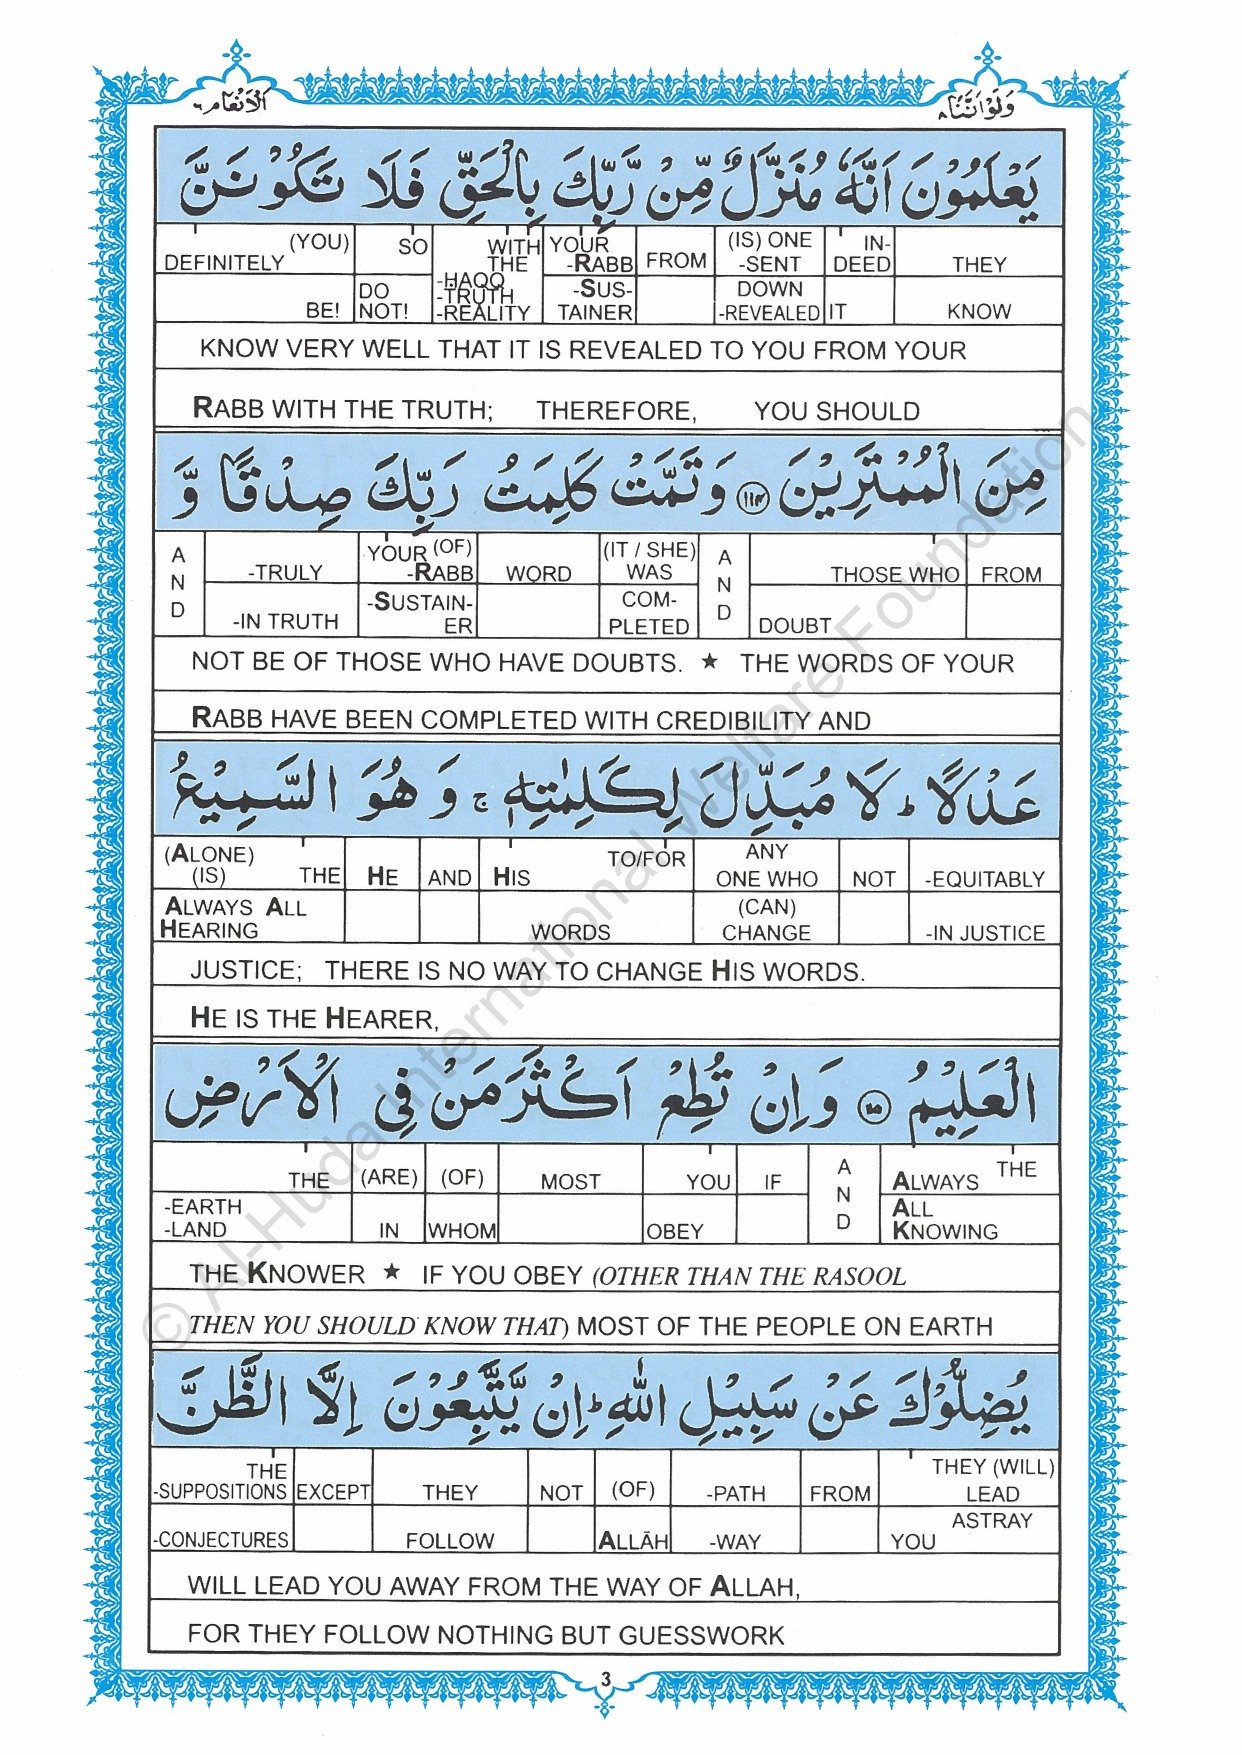 الانعام ٦
ولواننا ٨
يَعْلَمُوْنَ اَنَّهٗ مُنَزَّلٌ مِّنْ رَّبِّكَ بِالْحَقِّ فَلَا تَكُوْنَنَّ
(YOU) SO WITH YOUR (IS) ONE IN-
DEFINITELY THE -RABB FROM -SENT DEED THEY
DO -HAQQ -SUS- DOWN
BE! NOT! -TRUTH TAINER -REVEALED IT KNOW
-REALITY
KNOW VERY WELL THAT IT IS REVEALED TO YOU FROM YOUR
RABB WITH THE TRUTH; THEREFORE, YOU SHOULD
مِنَ الْمُمْتَرِيْنَ ١١٤ وَتَمَّتْ كَلِمَتُ رَبِّكَ صِدْقًا وَّ
AND -TRULY YOUR (OF) WORD (IT / SHE) AND THOSE WHO FROM
-RABB WAS
-IN TRUTH -SUSTAIN- COM- DOUBT
ER PLETED
NOT BE OF THOSE WHO HAVE DOUBTS. ★ THE WORDS OF YOUR
RABB HAVE BEEN COMPLETED WITH CREDIBILITY AND
عَدْلًا ؕ لَا مُبَدِّلَ لِكَلِمٰتِهٖ ۚ وَهُوَ السَّمِيْعُ
(ALONE) TO/FOR ANY
(IS) THE HE AND HIS ONE WHO NOT -EQUITABLY
ALWAYS ALL (CAN)
HEARING WORDS CHANGE -IN JUSTICE
JUSTICE; THERE IS NO WAY TO CHANGE HIS WORDS.
HE IS THE HEARER,
الْعَلِيْمُ ١١٥ وَاِنْ تُطِعْ اَكْثَرَ مَنْ فِي الْاَرْضِ
THE (ARE) (OF) MOST YOU IF AND ALWAYS THE
-EARTH ALL
-LAND IN WHOM OBEY KNOWING
THE KNOWER ★ IF YOU OBEY (OTHER THAN THE RASOOL
THEN YOU SHOULD KNOW THAT) MOST OF THE PEOPLE ON EARTH
يُضِلُّوْكَ عَنْ سَبِيْلِ اللّٰهِ ؕ اِنْ يَّتَّبِعُوْنَ اِلَّا الظَّنَّ
THE THEY (WILL)
-SUPPOSITIONS EXCEPT THEY NOT (OF) -PATH FROM LEAD
ASTRAY
-CONJECTURES FOLLOW ALLĀH -WAY YOU
WILL LEAD YOU AWAY FROM THE WAY OF ALLAH,
FOR THEY FOLLOW NOTHING BUT GUESSWORK
3
© Al-Huda International Welfare Foundation